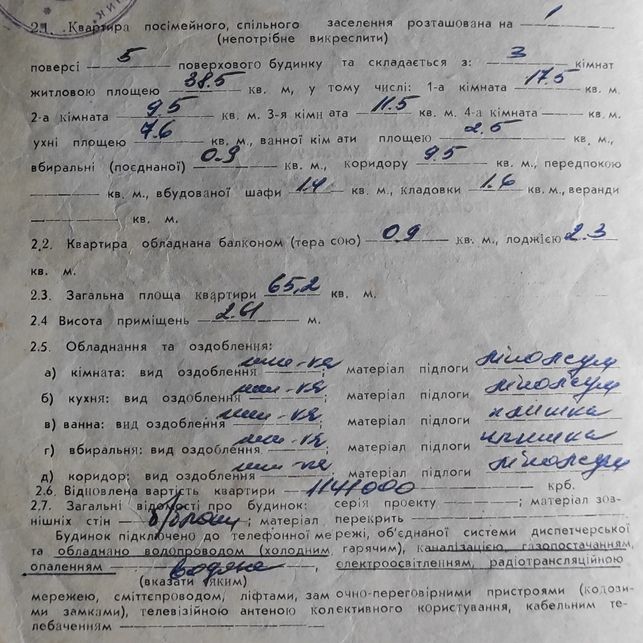 2.1. Квартира посімейного, спільного заселення розташована на 1
(непотрібне викреслити)
поверсі 5 поверхового будинку та складається з: 3 кімнат
житловою площею 38.5 кв. м, у тому числі: 1-а кімната 17.5 кв. м.
2-а кімната 9.5 кв. м. 3-я кімн ата 11.5 кв. м. 4-а кімната кв. м.
ухні площею 7.6 кв. м., ванної кім ати площею 2.5 кв. м.,
вбиральні (поєднаної) 0.9 кв. м., коридору 9.5 кв. м., передпокою
кв. м., вбудованої шафи 1.4 кв. м., кладовки 1.6 кв. м., веранди
кв. м.
2.2. Квартира обладнана балконом (тера сою) 0.9 кв. м., лоджією 2.3
кв. м.
2.3. Загальна площа квартири 65,2 кв. м.
2.4 Висота приміщень 2.61 м.
2.5. Обладнання та оздоблення:
а) кімната: вид оздоблення ; матеріал підлоги лінолеум
б) кухня: вид оздоблення ; матеріал підлоги лінолеум
в) ванна: вид оздоблення ; матеріал підлоги плитка
г) вбиральня: вид оздоблення ; матеріал підлоги плитка
д) коридор: вид оздоблення ; матеріал підлоги лінолеум
2.6. Відновлена вартість квартири 1141000 крб.
2.7. Загальні відомості про будинок: серія проекту ; матеріал зов-
нішніх стін ; матеріал перекрить
Будинок підключено до телефонної ме режі, об'єднаної системи диспетчерської
та обладнано водопроводом (холодним, гарячим), каналізацією, газопостачанням,
опаленням водяне, електроосвітленням, радіотрансляційною
(вказати яким)
мережею, сміттєпроводом, ліфтами, зам очно-переговірними пристроями (кодози-
ми замками), телевізійною антеною колективного користування, кабельним те-
лебаченням